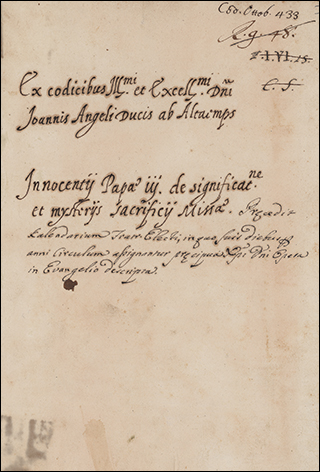 Cod. Ottob. 433
R. g. 48.
I. VI. 15.
E. S.
Ex codicibus Illmi et Excellmi Dñi
Joannis Angeli Ducis ab Altaemps
Innocentij Papæ iij. de significatne
et mysterijs Sacrificij Missæ. Præcedit
Kalendarium in quo suis diebus
anni Circuli assignantur præcipua Xpi Dñi Opera
in Evangelio descripta.